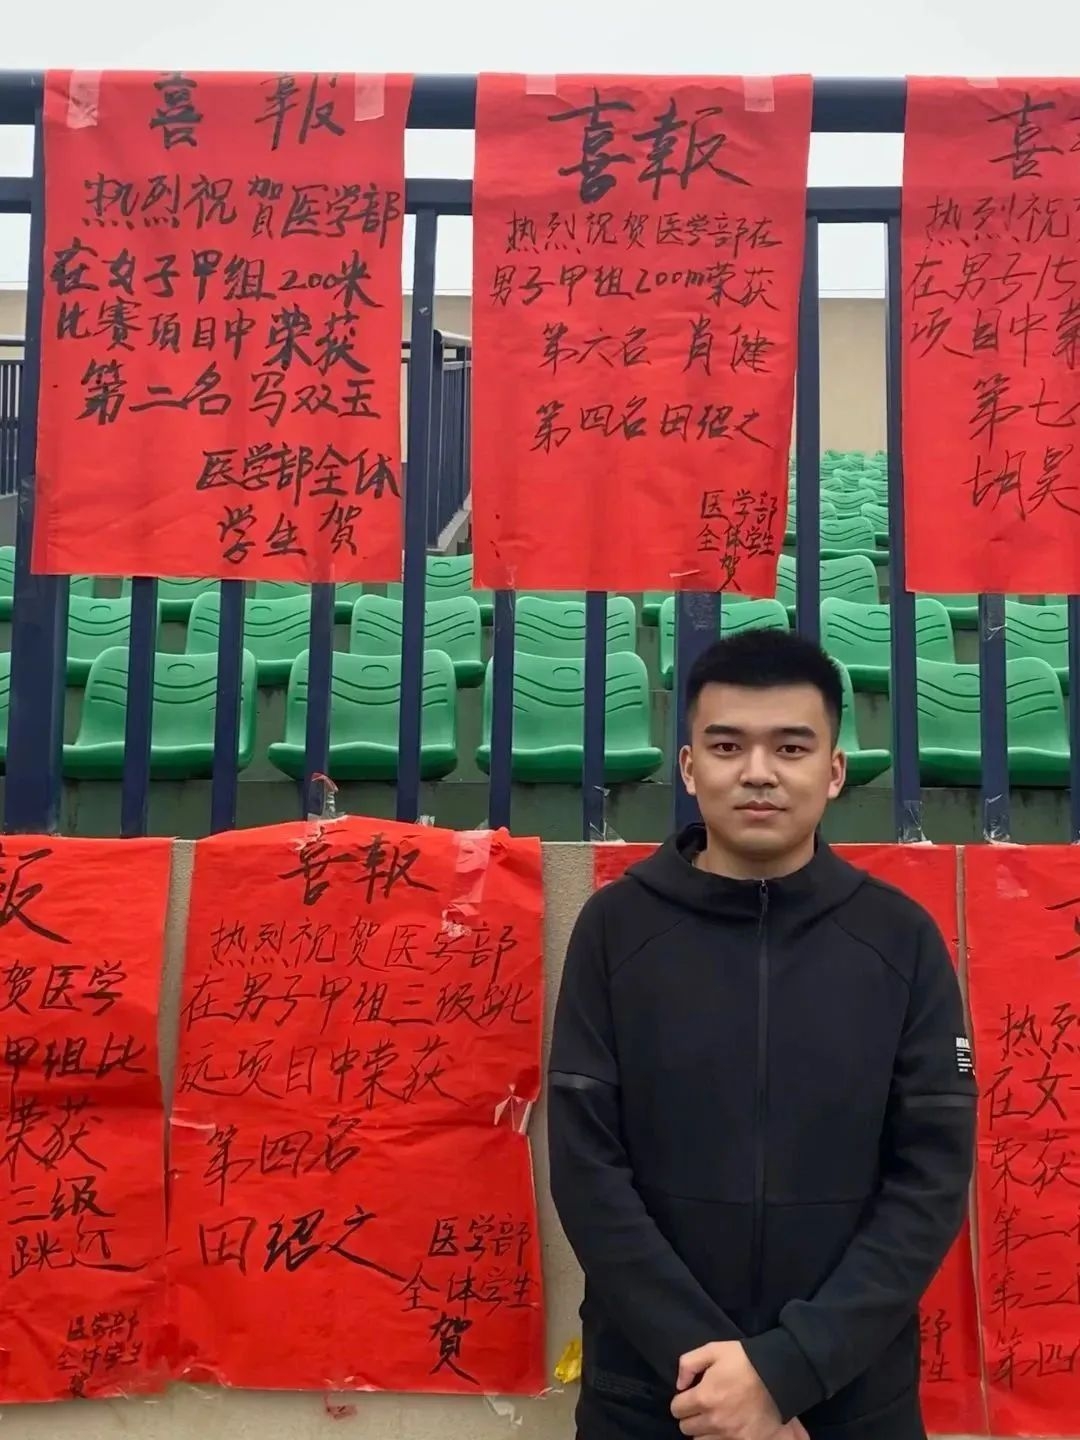 喜報
热烈祝贺医学部
在女子甲组200米
比赛项目中荣获
第二名 马双玉
医学部全体
学生贺
喜報
热烈祝贺医学部在
男子甲组200m荣获
第六名 肖健
第四名 田绍之
医学部
全体学生
贺
喜
热烈祝
在男子15
项目中荣
第七
胡昊
报
贺医学
甲组比
荣获
三级
跳远
医学部
全体学生
贺
喜報
热烈祝贺医学部
在男子甲组三级跳
远项目中荣获
第四名
田绍之
医学部
全体学生
賀
热烈
在女
荣获
第二
第三
第四